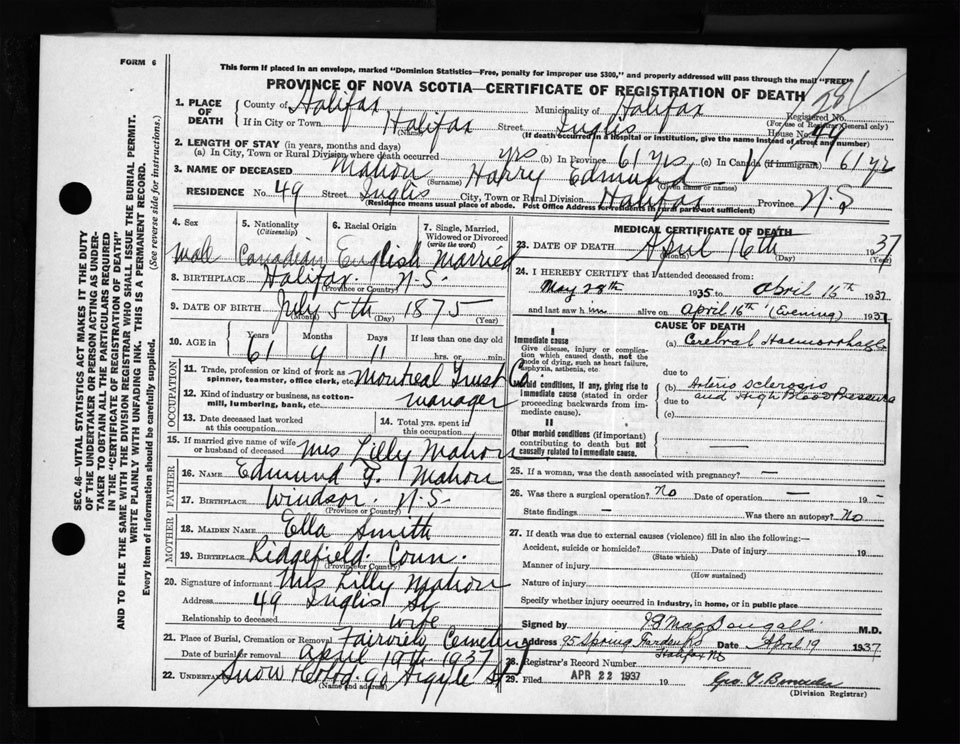 FORM 6
This form if placed in an envelope, marked "Dominion Statistics—Free, penalty for improper use $300," and properly addressed will pass through the mail "FREE"
PROVINCE OF NOVA SCOTIA—CERTIFICATE OF REGISTRATION OF DEATH
281
1. PLACE OF DEATH
County of Halifax Municipality of Halifax Registered No.
(For use of Registrar General only)
If in City or Town Halifax Street Inglis House No. 49
(Name) (If death occurred in a hospital or institution, give the name instead of street and number)
2. LENGTH OF STAY (in years, months and days)
(a) In City, Town or Rural Division where death occurred yrs (b) In Province 61 yrs (c) In Canada (if immigrant) 61 yr
3. NAME OF DECEASED Mahon Harry Edmund
(Surname) (Given name or names)
RESIDENCE No. 49 Street Inglis City, Town or Rural Division Halifax Province N.S.
(Residence means usual place of abode. Post Office Address for residents in rural parts not sufficient)
4. Sex
5. Nationality (Citizenship)
6. Racial Origin
7. Single, Married, Widowed or Divorced (write the word)
male Canadian English Married
8. BIRTHPLACE Halifax N.S.
(Province or Country)
9. DATE OF BIRTH July 5th 1875
(Month) (Day) (Year)
10. AGE in Years Months Days If less than one day old
61 9 11 hrs. or min.
OCCUPATION
11. Trade, profession or kind of work as spinner, teamster, office clerk, etc. Montreal Trust Co.
12. Kind of industry or business, as cotton-mill, lumbering, bank, etc. manager
13. Date deceased last worked at this occupation
14. Total yrs. spent in this occupation
15. If married give name of wife or husband of deceased Mrs Lilly Mahon
FATHER
16. NAME Edmund F. Mahon
17. BIRTHPLACE Windsor N.S.
(Province or Country)
MOTHER
18. MAIDEN NAME Ella Smith
19. BIRTHPLACE Ridgefield. Conn.
(Province or Country)
20. Signature of informant Mrs Lilly Mahon
Address 49 Inglis St
Relationship to deceased wife
21. Place of Burial, Cremation or Removal Fairview Cemetery
Date of burial or removal April 19th 1937
22. UNDERTAKER Snow & Co Ltd. 90 Argyle St
(Name and address)
MEDICAL CERTIFICATE OF DEATH
23. DATE OF DEATH April 16th 1937
(Month) (Day) (Year)
24. I HEREBY CERTIFY that I attended deceased from:
May 28th 1935 to April 16th 1937
and last saw h im alive on April 16th (Evening) 1937
CAUSE OF DEATH
I
Immediate cause
Give disease, injury or complication which caused death, not the mode of dying, such as heart failure, asphyxia, asthenia, etc.
(a) Cerebral Haemorrhage
due to
Morbid conditions, if any, giving rise to immediate cause (stated in order proceeding backwards from immediate cause).
(b) Arterio sclerosis
and High Blood Pressure
due to
(c)
II
Other morbid conditions (if important) contributing to death but not causally related to immediate cause.
25. If a woman, was the death associated with pregnancy? —
26. Was there a surgical operation? No Date of operation — 19 -
State findings — Was there an autopsy? No
27. If death was due to external causes (violence) fill in also the following:—
Accident, suicide or homicide? Date of injury 19
(State which)
Manner of injury
(How sustained)
Nature of injury
Specify whether injury occurred in industry, in home, or in public place
Signed by MacDougall M.D.
Address 95 Spring Garden Rd Date April 19 1937
Halifax NS
28. Registrar's Record Number
29. Filed APR 22 1937 19
(Division Registrar)
SEC. 46—VITAL STATISTICS ACT MAKES IT THE DUTY
OF THE UNDERTAKER OR PERSON ACTING AS UNDER-
TAKER TO OBTAIN ALL THE PARTICULARS REQUIRED
IN THE "CERTIFICATE OF REGISTRATION OF DEATH"
AND TO FILE THE SAME WITH THE DIVISION REGISTRAR WHO SHALL ISSUE THE BURIAL PERMIT.
WRITE PLAINLY WITH UNFADING INK. THIS IS A PERMANENT RECORD.
Every item of information should be carefully supplied. (See reverse side for instructions.)